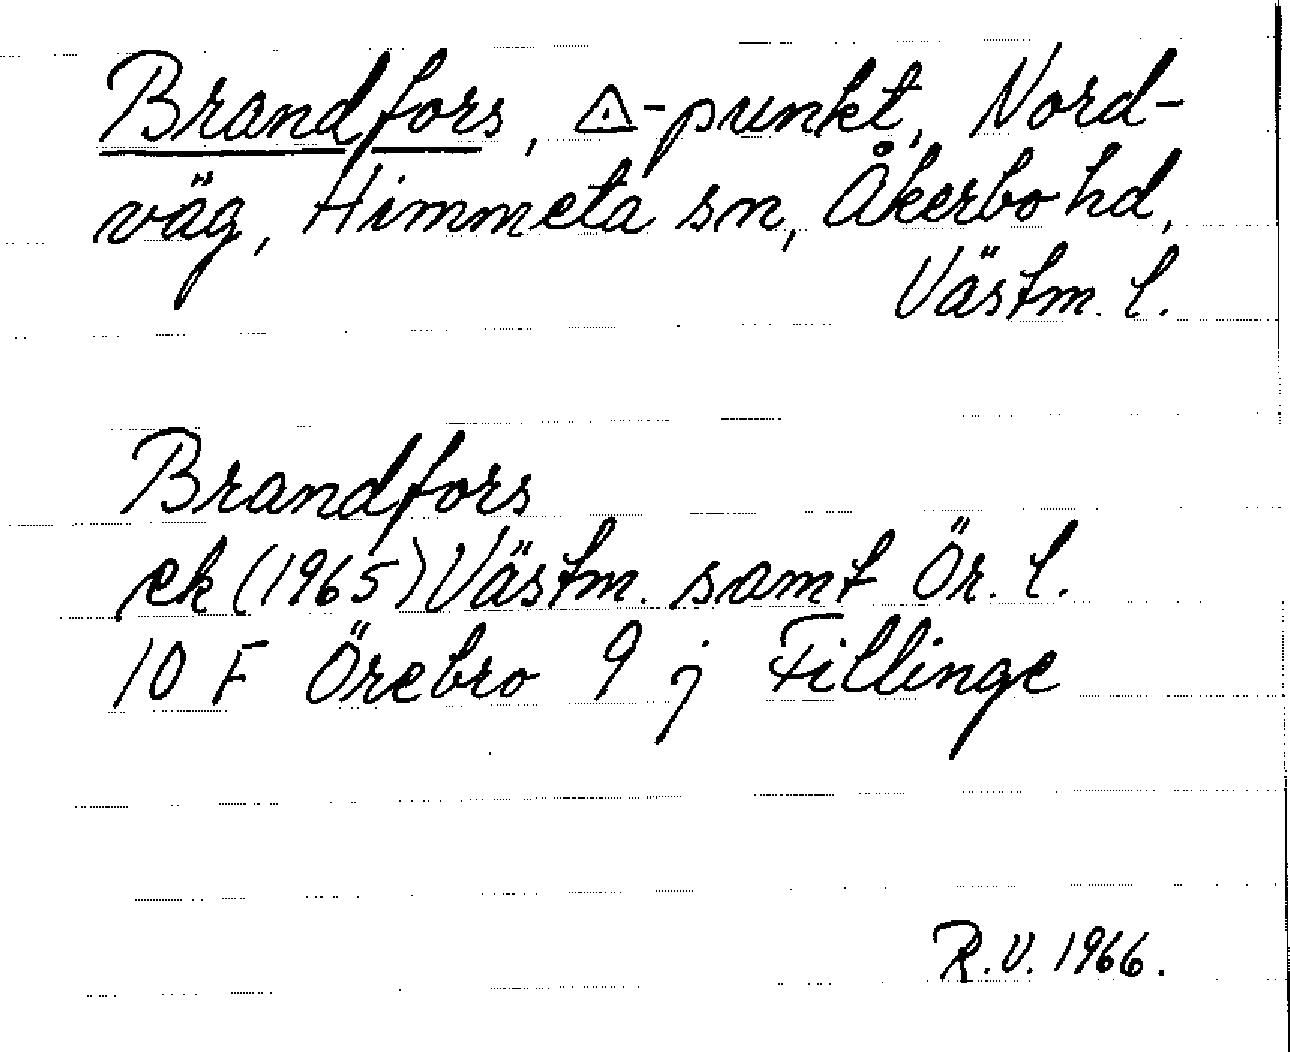 Brandfors, ◬-punkt, Nord-
väg, Himmeta sn, Åkerbo hd,
Västm. l.
Brandfors
ek (1965) Västm. samt Ör. l.
10 F Örebro 9 j Fillinge
R.V. 1966.